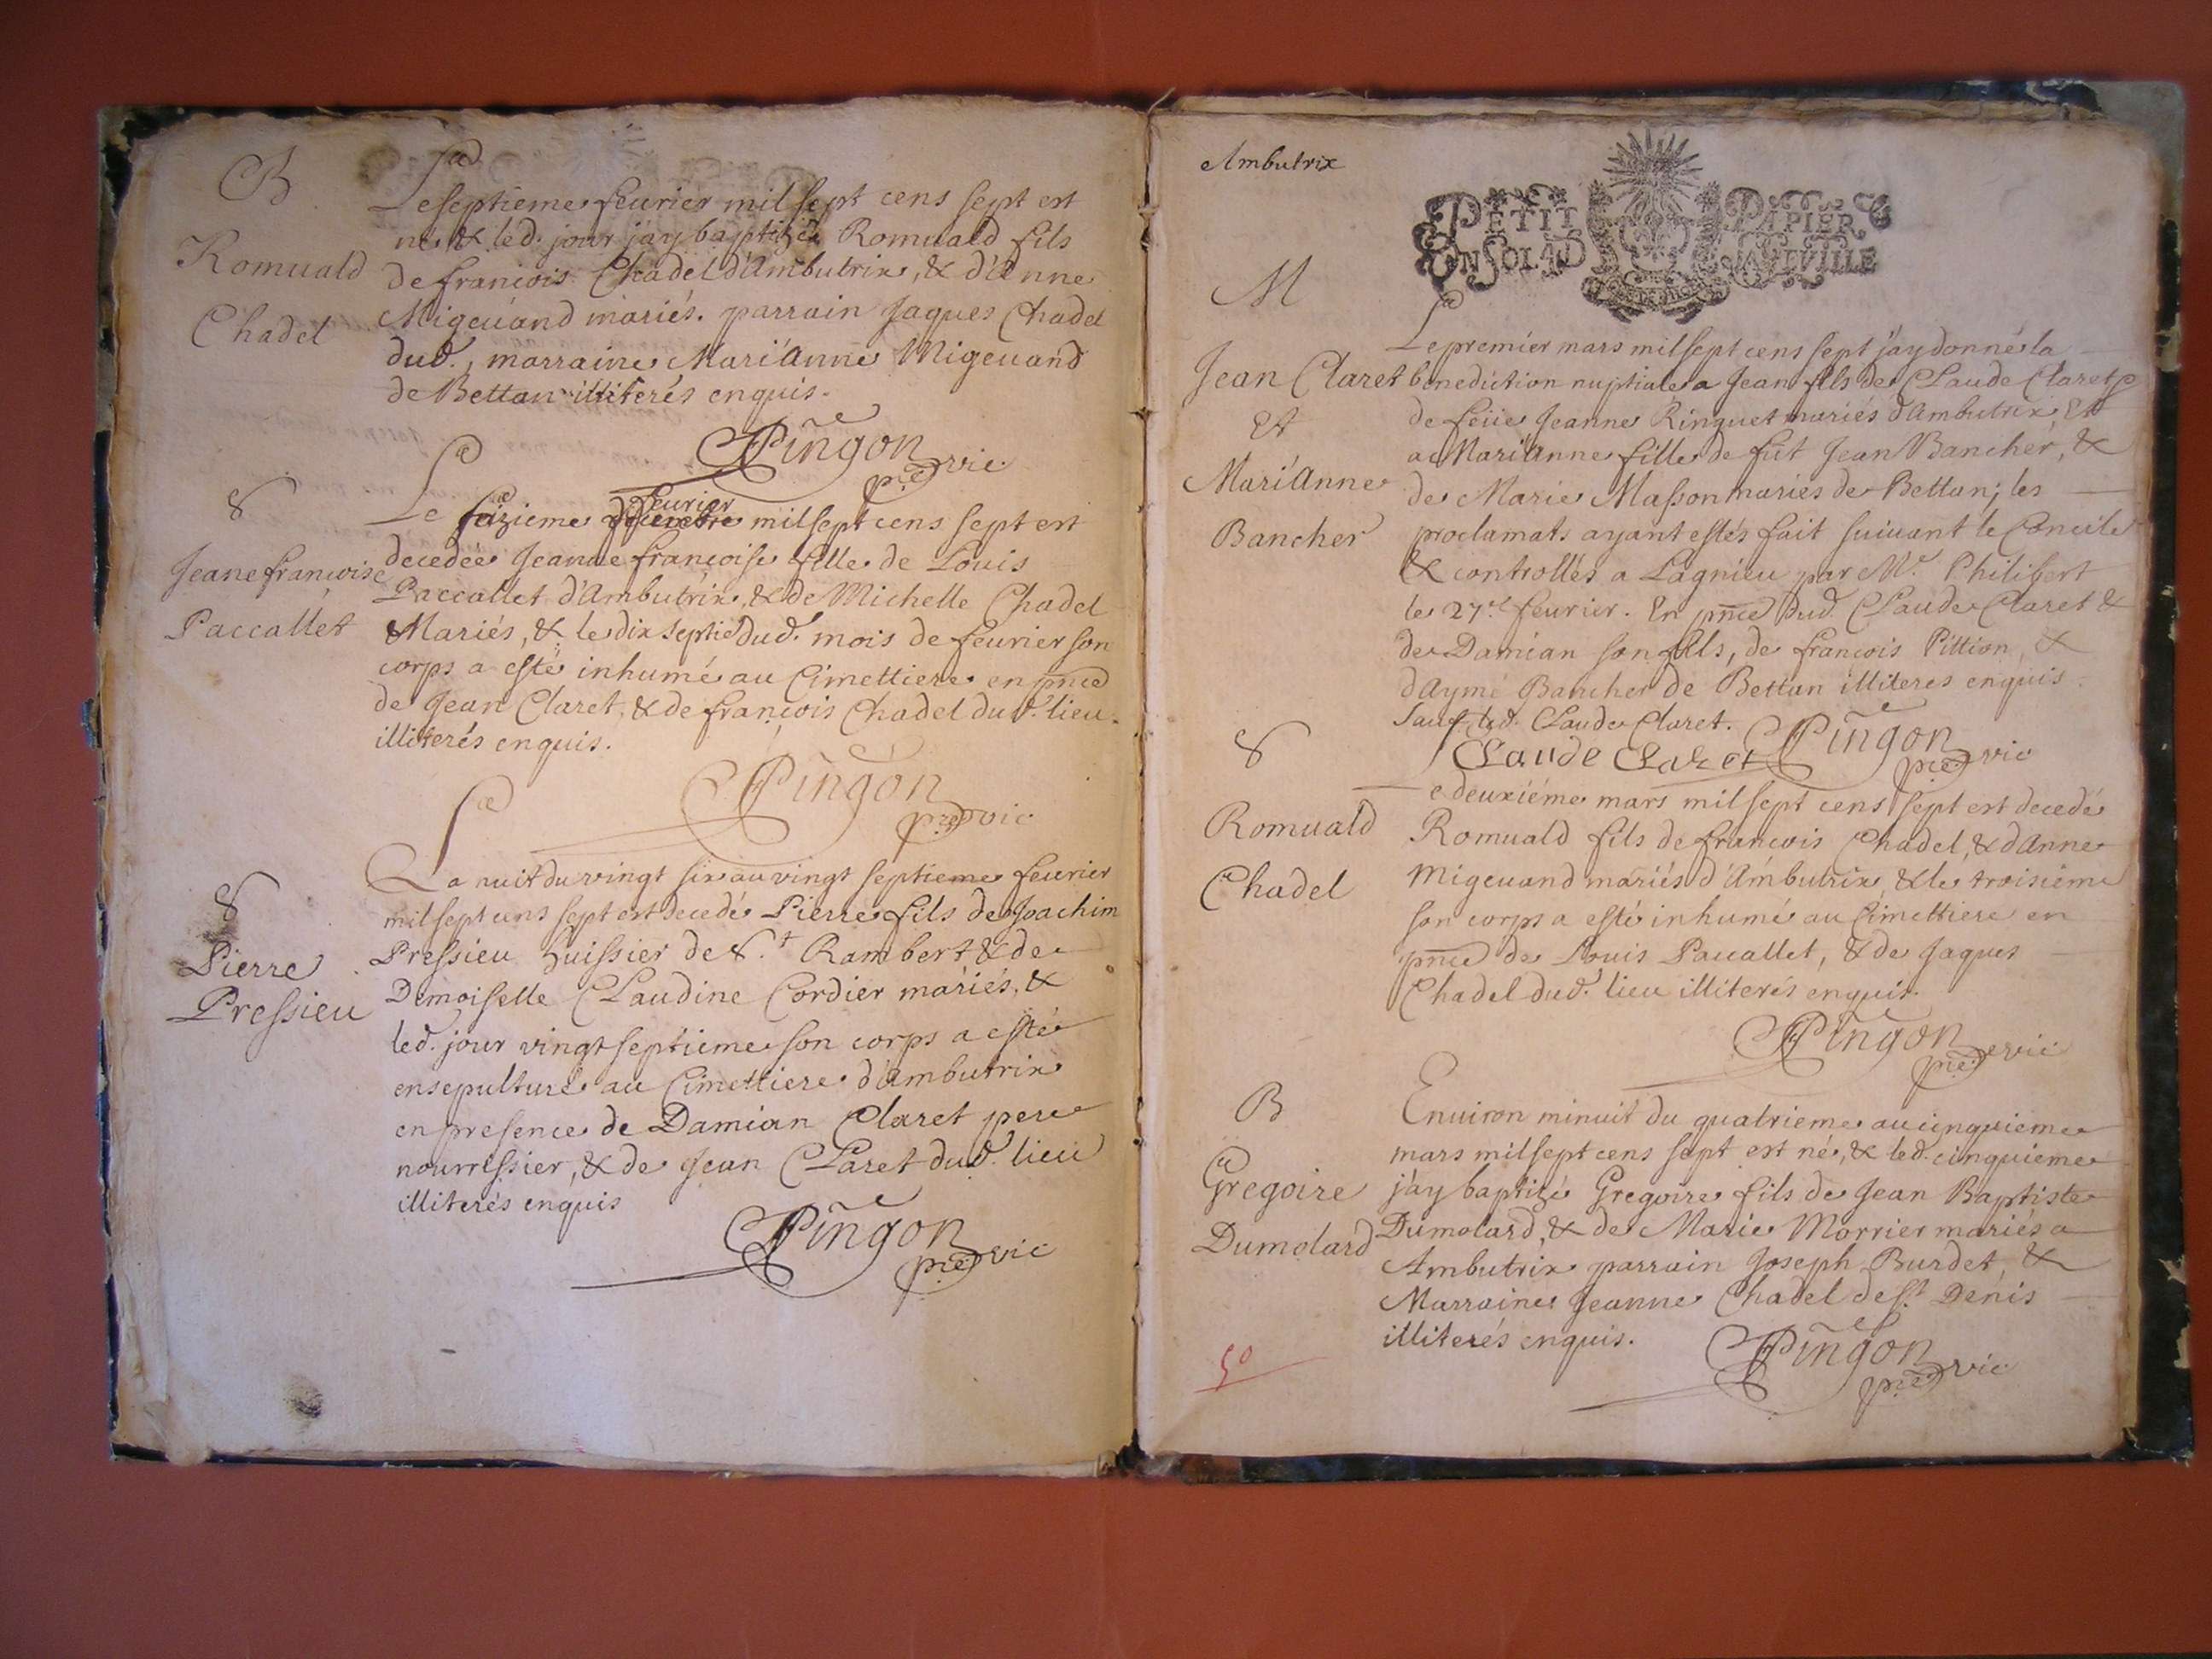 B
Romuald
Chadel
Le septieme feurier mil sept cens sept est
né & led. jour j'ay baptizé Romuald fils
de francois Chadel d'Ambutrix, & d'Anne
Migeuand mariés. parrain Jaques Chadel
dud., marraine Mari'Anne Migeuand
de Bettan illiterés enquis.
Pingon
pre vic
S
Jeane françoise
Paccallet
feurier
Le seizieme mil sept cens sept est
decedée Jeanne françoise fille de Louis
Paccallet d'Ambutrix, & de Michelle Chadel
Mariés, & le dix septie dud. mois de feurier son
corps a esté inhumé au Cimettiere en pnce
de Jean Claret, & de françois Chadel dud. lieu.
illiterés enquis.
Pingon
pre vic
S
Pierre
Pressieu
La nuit du vingt six au vingt septieme feurier
mil sept cens sept est decedé Pierre fils de Joachim
Pressieu huissier de St. Rambert & de
Demoiselle Claudine Cordier mariés, &
led. jour vingt septieme son corps a esté
ensepulturé au Cimettiere d'Ambutrix
en presence de Damian Claret pere
nourrissier, & de Jean Claret dud. lieu
illiterés enquis
Pingon
pre vic
Ambutrix
PETIT PAPIER
UN SOL 4 D LA FEVILLE
M
Jean Claret
Et
Mari'Anne
Bancher
Le premier mars mil sept cens sept j'ay donné la
benediction nuptiale a Jean fils de Claude Claret &
de feüe Jeanne Ringuet mariés d'Ambutrix Et
a Mari'Anne fille de fût Jean Bancher, &
de Marie Masson mariés de Bettan; les
proclamats ayant estés fait suiuant le Concile
& controllés a Lagnieu par Mr. Philibert
le 27e feurier. En pnce dud. Claude Claret &
de Damian son fils, de françois Pittion, &
d'Aymé Bancher de Bettan illiteres enquis.
Sauf led. Claude Claret.
Claude Claret Pingon
pre vic
S
Romuald
Chadel
Le deuxiéme mars mil sept cens sept est decedé
Romuald fils de francois Chadel, & d'Anne
Migeuand mariés d'Ambutrix, & le troisieme
son corps a esté inhumé au Cimettiere en
pnce de Louis Paccallet, & de Jaques
Chadel dud. lieu illiterés enquis.
Pingon
pre vic
B
Gregoire
Dumolard
Enuiron minuit du quatrieme au cinquieme
mars mil sept cens sept est né, & led. cinquieme
j'ay baptizé Gregoire fils de Jean Baptiste
Dumolard, & de Marie Morrier mariés a
Ambutrix parrain Joseph Burdet, &
Marraine Jeanne Chadel de St. Denis
illiterés enquis.
Pingon
pre vic
50